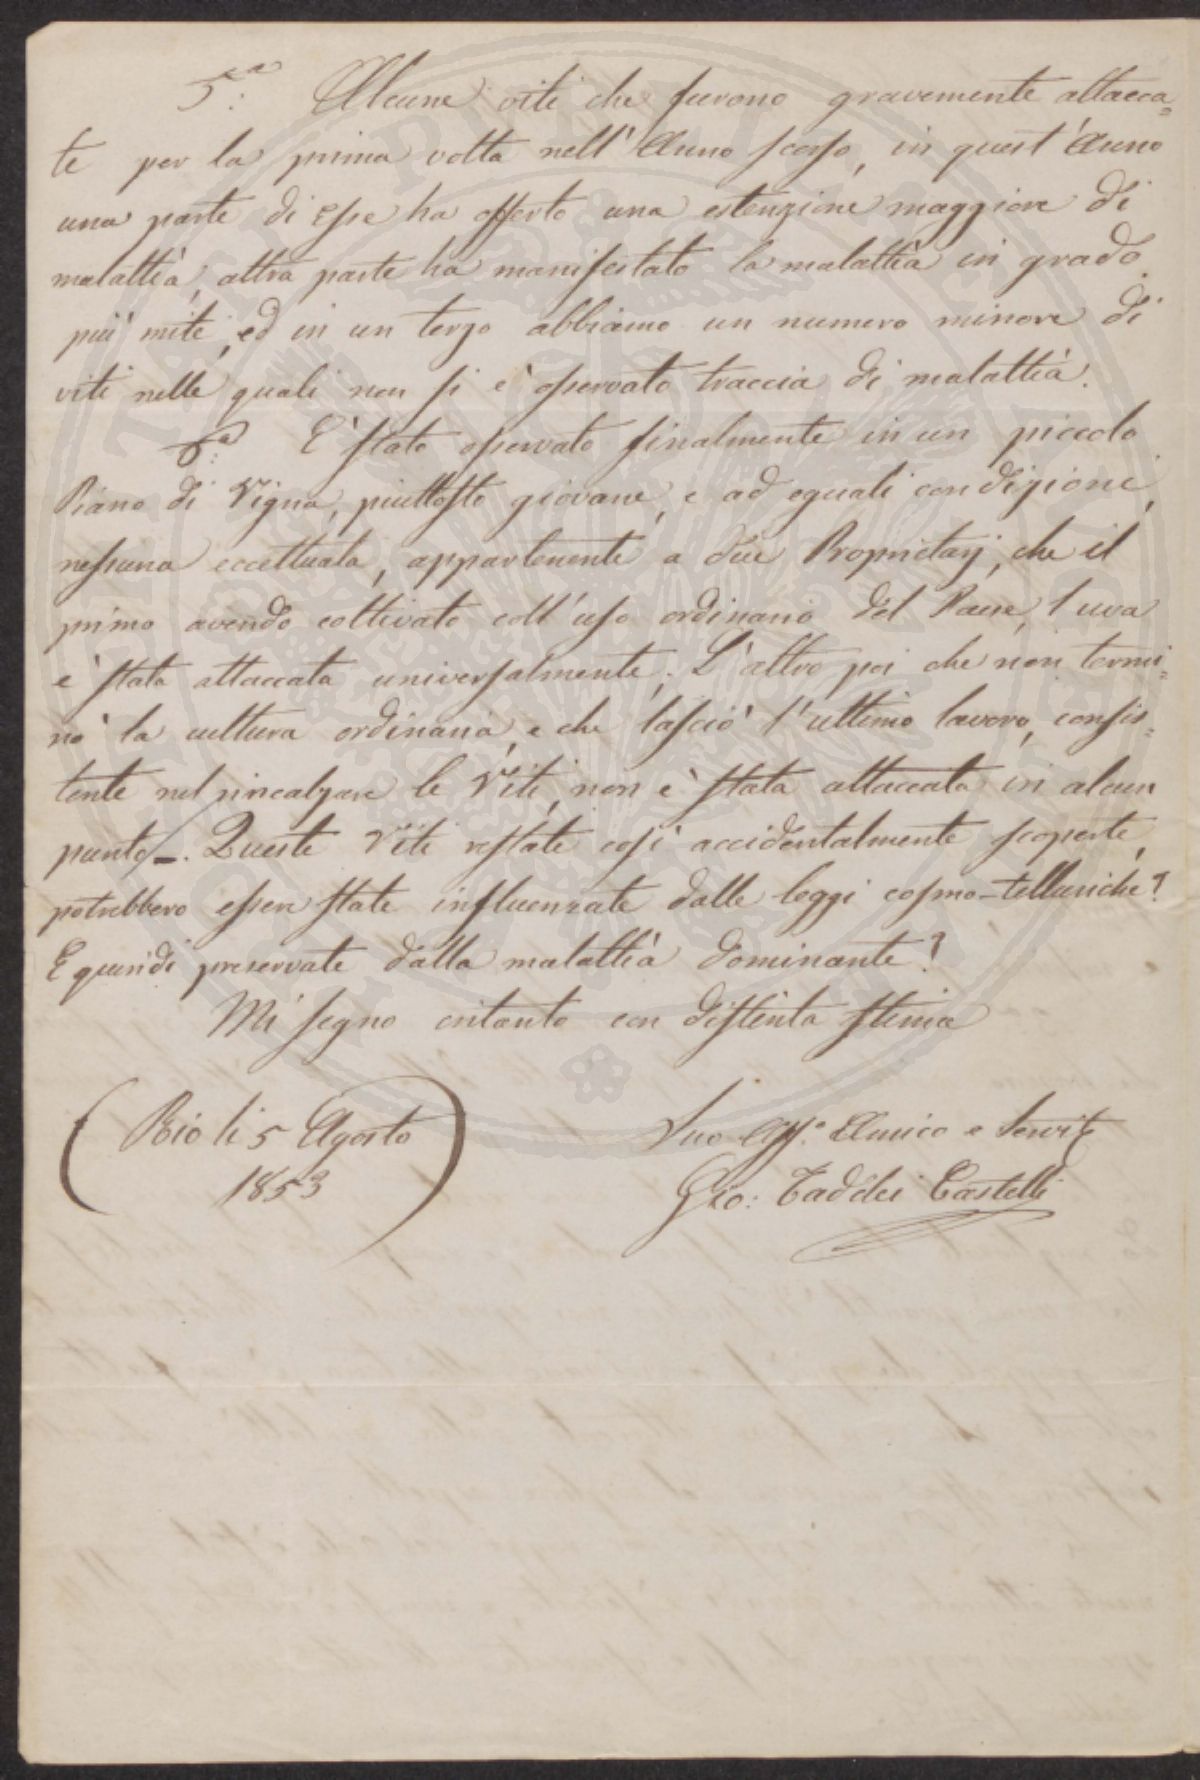 5.ª Alcune viti che furono gravemente attacca=
te per la prima volta nell'Anno scorso, in quest'Anno
una parte di esse ha offerto una estenzione maggiore di
malattia, altra parte ha manifestato la malattia in grado
più mite, ed in un terzo abbiamo un numero minore di
viti nelle quali non si è osservato traccia di malattia.
6.ª È stato osservato finalmente in un piccolo
Piano di Vigna, piuttosto giovane, e ad eguali condizioni,
nessuna eccettuata, appartenente a due Proprietarj, che il
primo avendo coltivato coll'uso ordinario del Paese, l'uva
è stata attaccata universalmente; L'altro poi che non termi=
nò la cultura ordinaria, e che lasciò l'ultimo lavoro, consis=
tente nel rincalzare le Viti, non è stata attaccata in alcun
punto_. Queste Viti restate così accidentalmente scoperte,
potrebbero essere state influenzate dalle leggi cosmo-telluriche?
E quindi preservate dalla malattia dominante?
Mi segno intanto con distinta stima
(Rio li 5 Agosto
1853)
Suo Aff.º Amico e Servit.e
Gio: Taddei Castelli